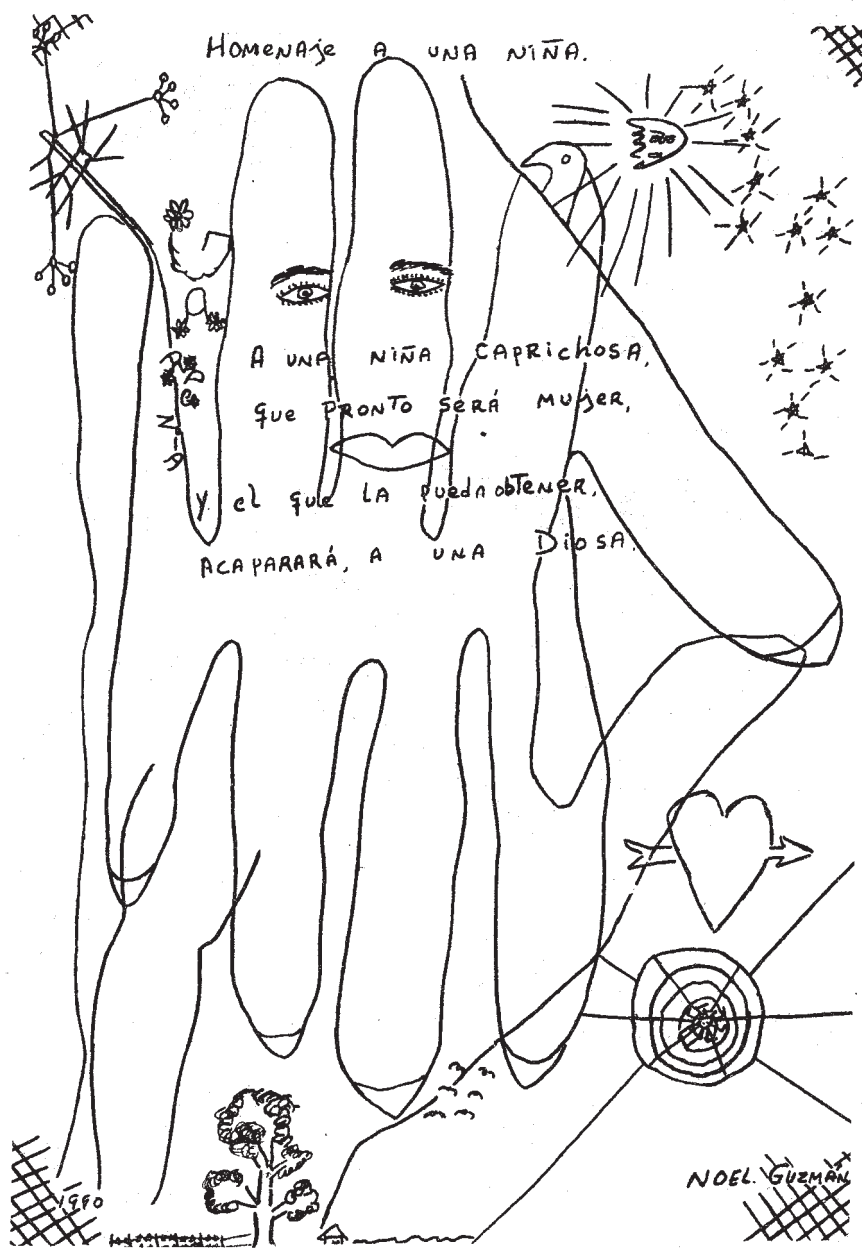 Homenaje A UNA NIÑA.
A UNA NIÑA CAPRichosA,
que PRONTO SERÁ MUjer,
Y el que LA puedA obTeNer,
ACAPARARÁ, A UNA DiosA.
NOEL. GUZMÁN
1990